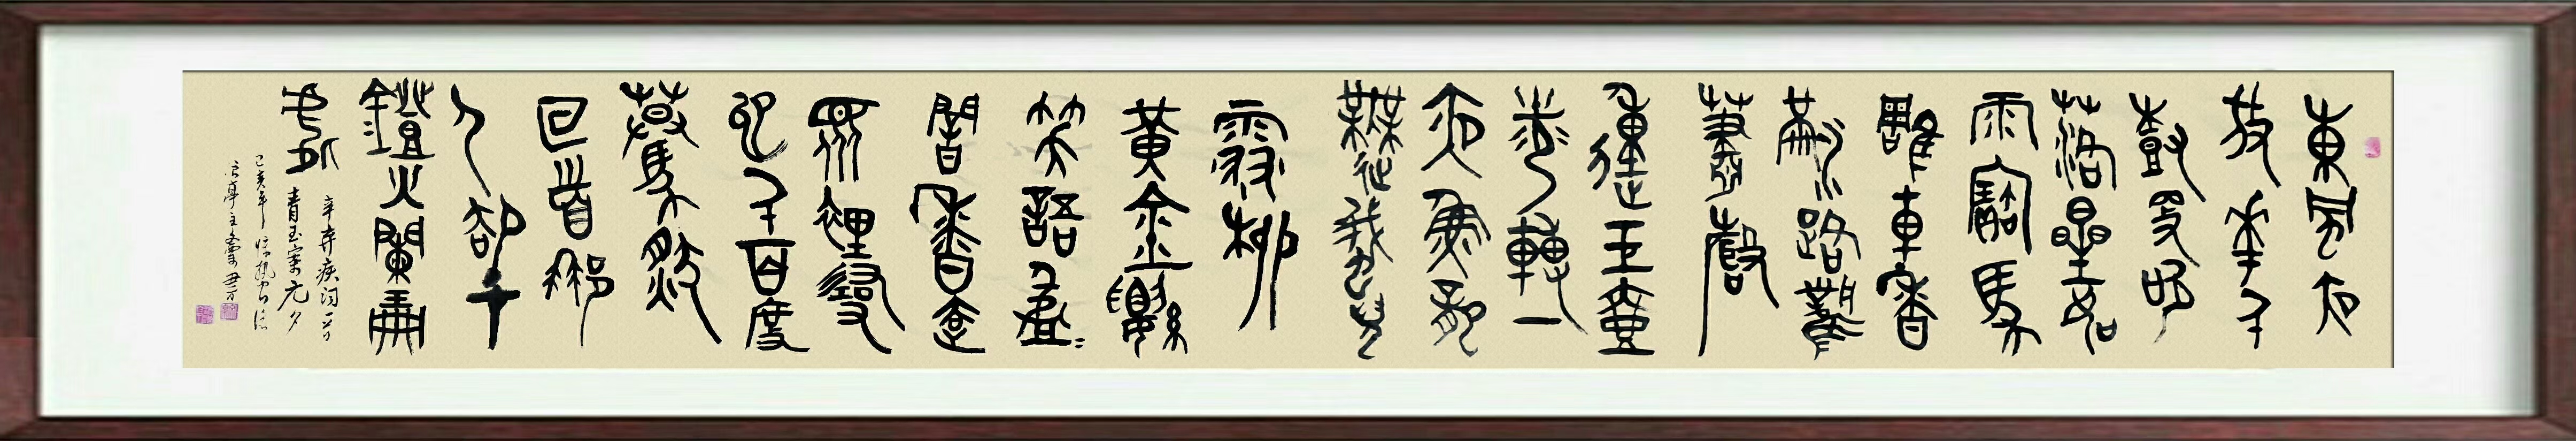 東風夜
放華千
樹更吹
落星如
雨寶馬
雕車香
滿路鳳
簫聲
動玉壺
光轉一
夜魚龍
舞蛾兒
雪柳
黃金縷
笑語盈〻
闇香去
眾裡尋
他千百度
驀然
回首那
人卻在
鐙火闌珊
處
辛弃疾词一首
青玉案元夕
己亥年